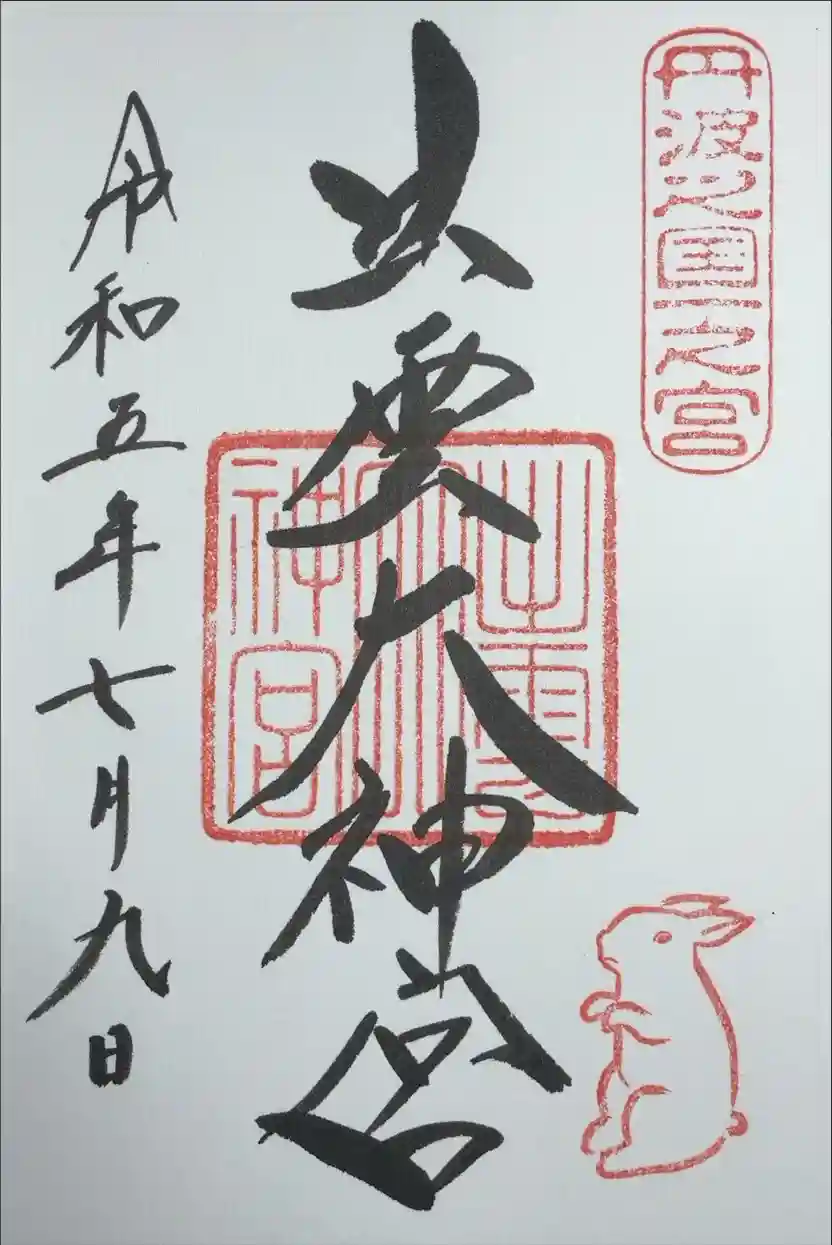 丹波之國一之宮
出雲大神宮
出雲大神宮
令和五年七月九日